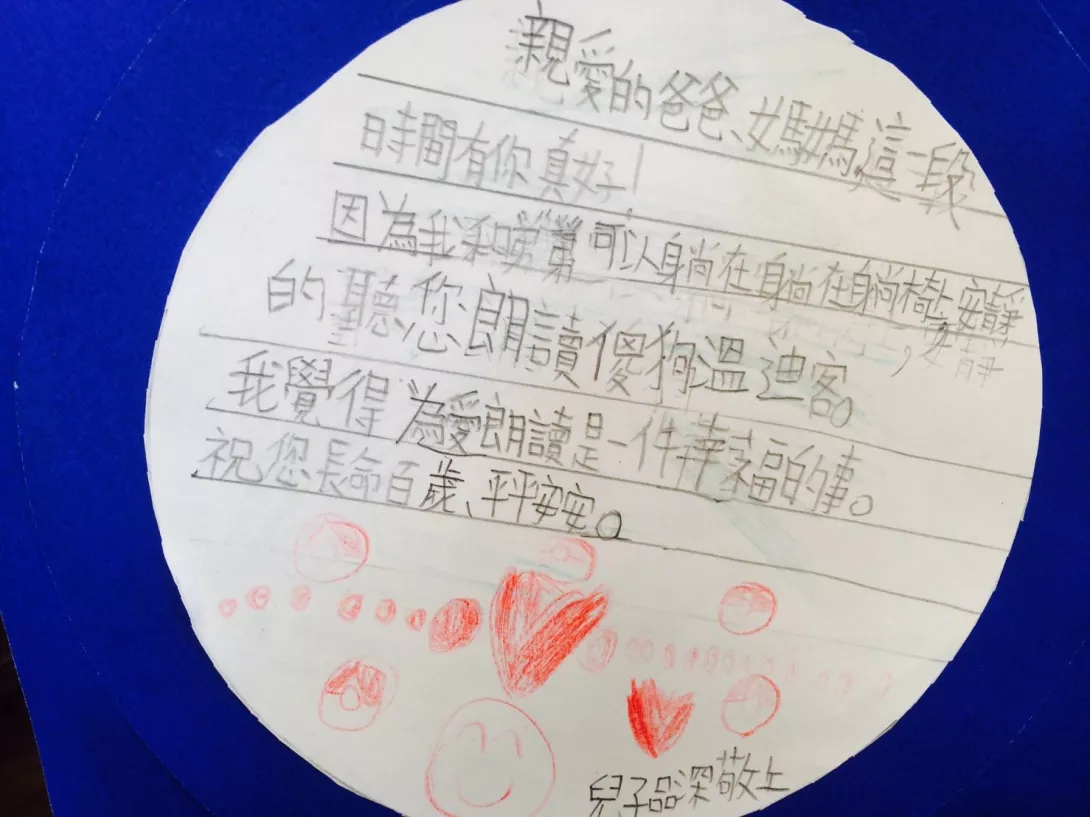 親愛的爸爸、媽媽,這一段
時間有你真好!
因為我和弟弟可以躺在躺在躺椅上,安靜
的聽您朗讀傻狗溫迪客。
我覺得為愛朗讀是一件幸福的事。
祝您長命百歲、平平安安。
兒子品深敬上